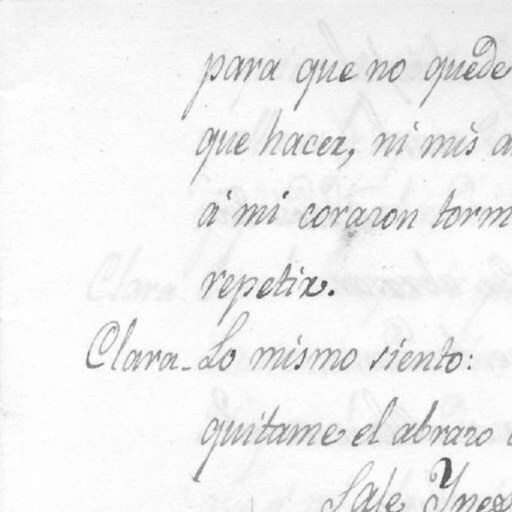 para que no quede
que hacer, ni mis
á mi corazon
repetir.
Clara - Lo mismo siento:
quitame el abrazo
Sale Ynes